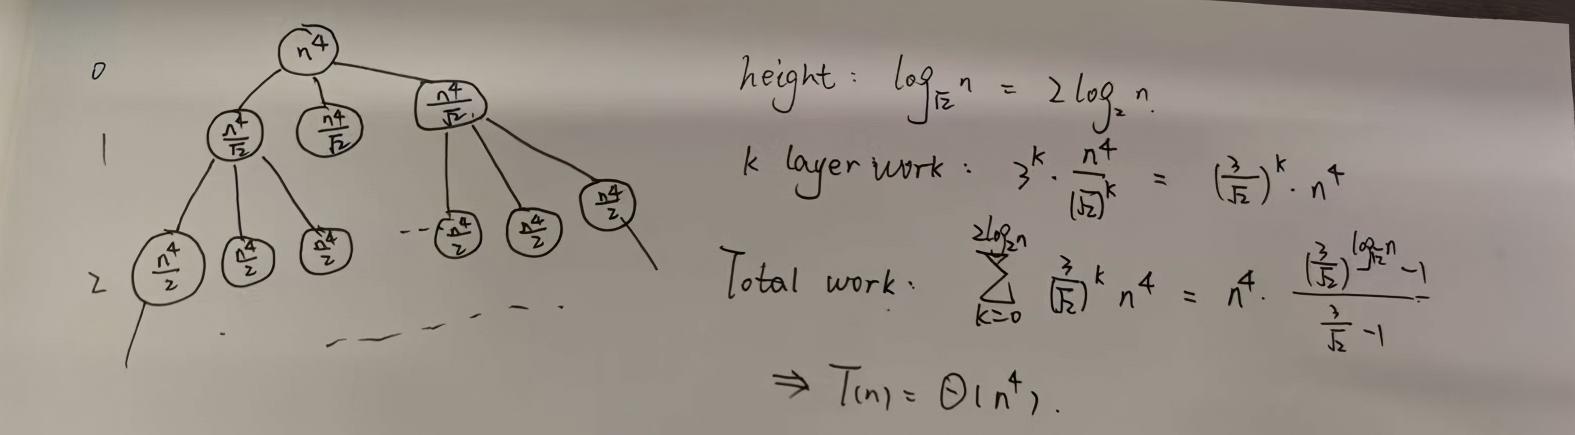 0
n⁴
1
n⁴/√2 n⁴/√2 n⁴/√2
2
n⁴/2 n⁴/2 n⁴/2 -- n⁴/2 n⁴/2 n⁴/2
height: log_√2 n = 2 log₂ n.
k layer work: 3^k · n⁴/(√2)^k = (3/√2)^k · n⁴
Total work: ∑_{k=0}^{2log₂n} (3/√2)^k n⁴ = n⁴ · ((3/√2)^{log_√2 n} - 1)/(3/√2 - 1)
⇒ T(n) = Θ(n⁴).